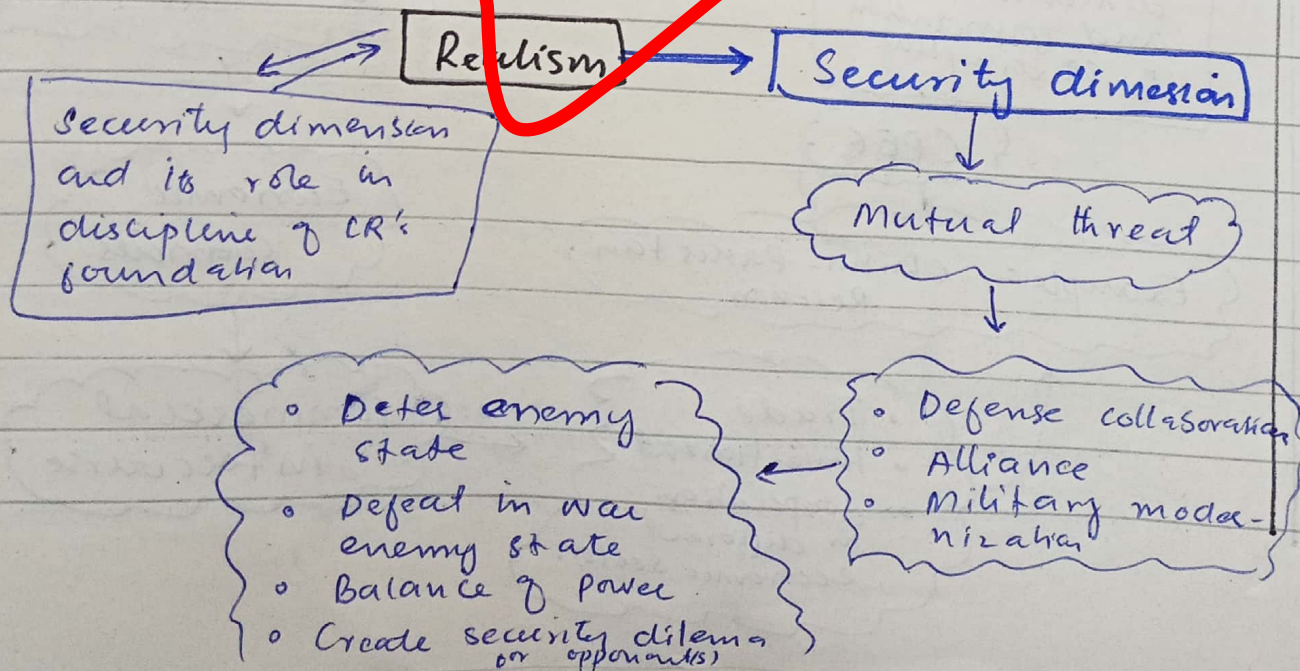 Realism
Security dimesion
Security dimension
and its role in
discipline of CR's
foundation
Mutual threat
• Defense collaboration
• Alliance
• Military moder-
nization
• Deter enemy
state
• Defeat in war
enemy state
• Balance of Power
• Create security dilema
or opponant(s)